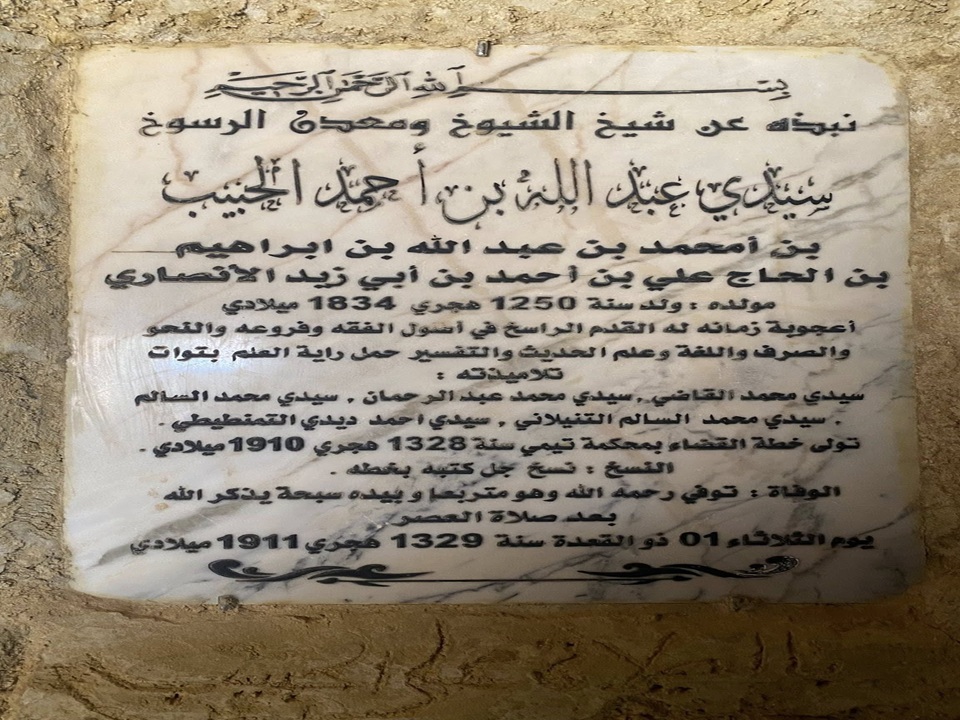 بسم الله الرحمن الرحيم
نبذه عن شيخ الشيوخ ومعدن الرسوخ
سيدي عبد الله بن أحمد الحبيب
بن أمحمد بن عبد الله بن ابراهيم
بن الحاج علي بن أحمد بن أبي زيد الأنصاري
مولده : ولد سنة 1250 هجري 1834 ميلادي
أعجوبة زمانه له القدم الراسخ في أصول الفقه وفروعه والنحو
والصرف واللغة وعلم الحديث والتفسير حمل راية العلم بتوات
تلاميذته :
سيدي محمد القاضي , سيدي محمد عبد الرحمان , سيدي محمد السالم
, سيدي محمد السالم التنيلاني , سيدي احمد ديدي التمنطيطي .
تولى خطة القضاء بمحكمة تيمي سنة 1328 هجري 1910 ميلادي .
النسخ : نسخ جل كتبه بخطه .
الوفاة : توفي رحمه الله وهو متربعا و بيده سبحة يذكر الله
بعد صلاة العصر
يوم الثلاثاء 01 ذو القعدة سنة 1329 هجري 1911 ميلادي